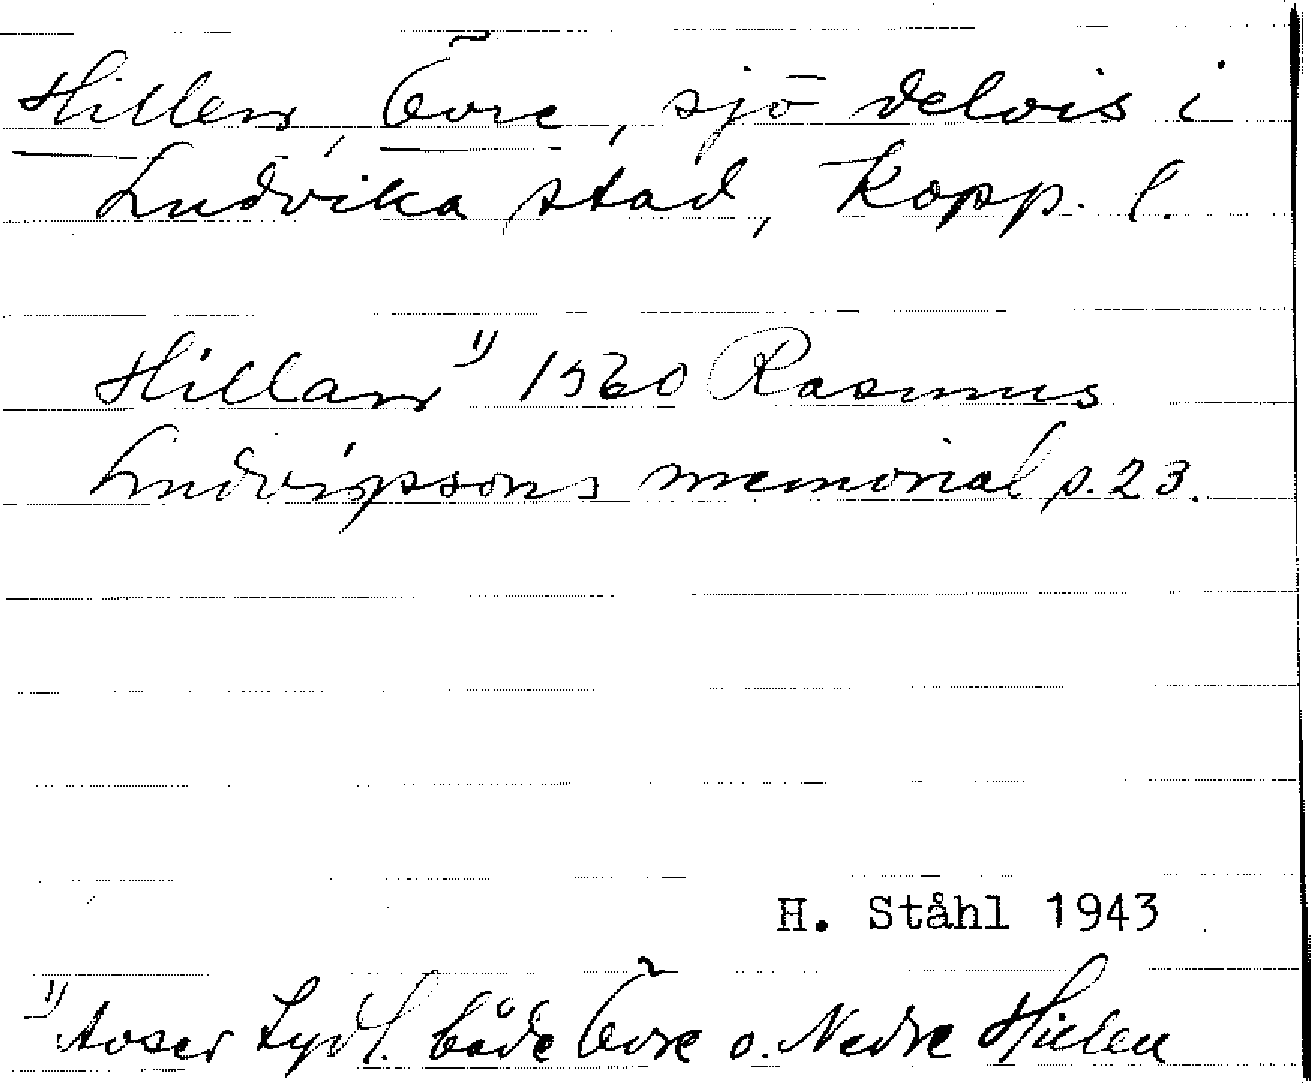 Hillen, Övre, sjö delvis i
Ludvika stad, Kopp. l.
Hillan 1) 1560 Rasmus
Ludvigsons memorial s. 23.
H. Ståhl 1943
1) Avser tydl. både Övre o. Nedre Hillen